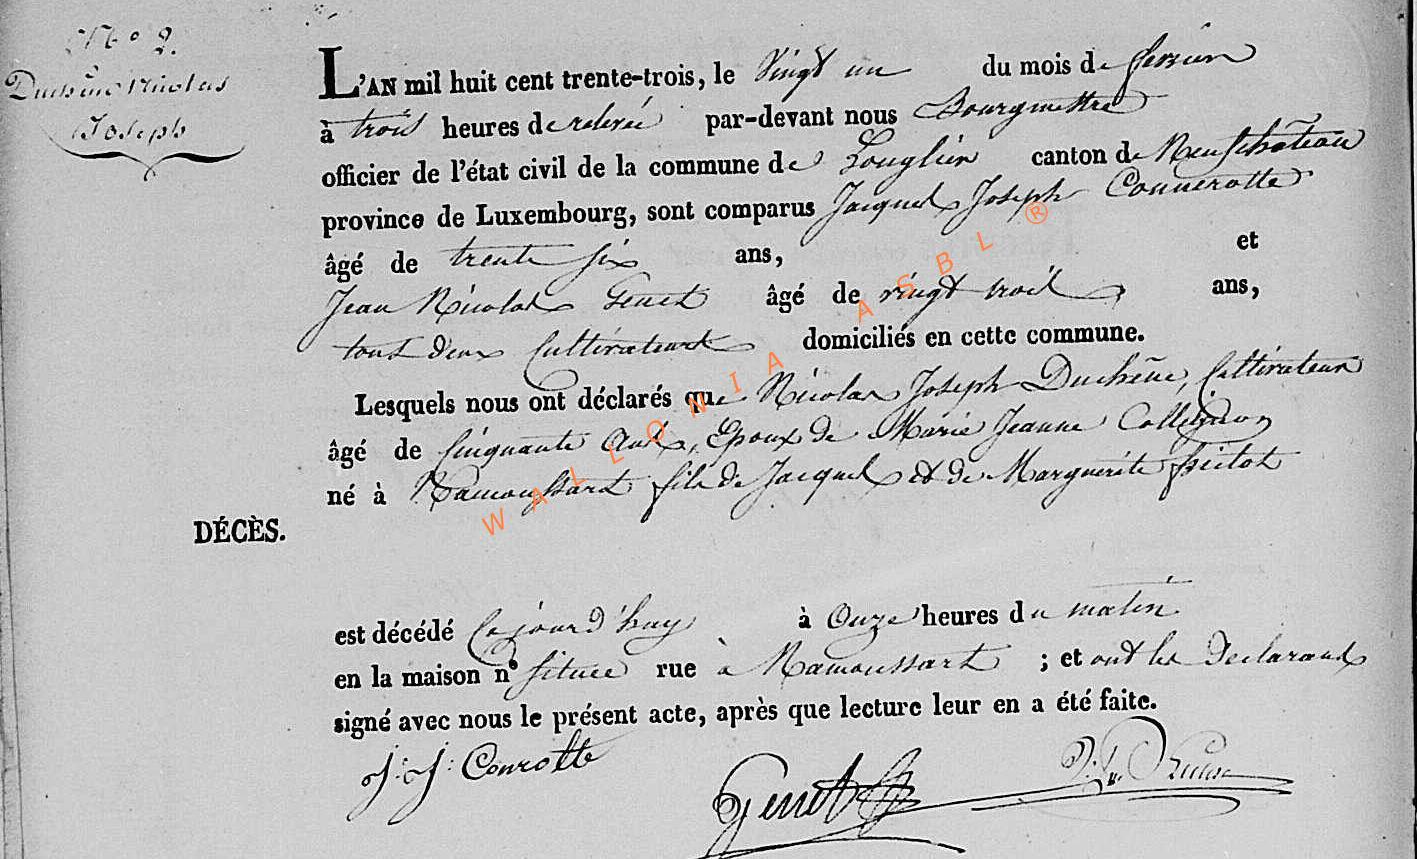 N° 2.
Duchêne Nicolas
Joseph
L'AN mil huit cent trente-trois, le Vingt un du mois de fevrier
à trois heures de relevée par-devant nous Bourgmettre
officier de l'état civil de la commune de Longlier canton de Neufchâteau
province de Luxembourg, sont comparus Jacques Joseph Connerotte
âgé de trente six ans, et
Jean Nicolas Genet âgé de vingt trois ans,
tous deux Cultivateurs domiciliés en cette commune.
Lesquels nous ont déclarés que Nicolas Joseph Duchêne, Cultivateur
âgé de Cinquante Ans, Epoux de Marie Jeanne Collignon
né à Namoussart fils de Jacques et de Marguerite
DÉCÈS.
est décédé Cejourd'huy à Onze heures du matin
en la maison n° située rue à Namoussart ; et ont les Declarants
signé avec nous le présent acte, après que lecture leur en a été faite.
J: J: Conrotte
Genet
WALLONIA ASBL ®